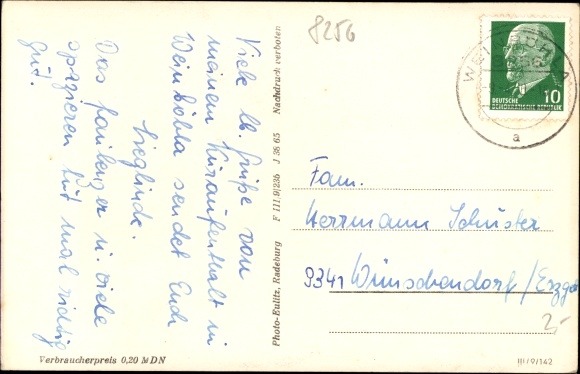 8256
Viele lb. Grüße von
meinem Kuraufenthalt in
Weinböhla sendet Euch
Sieglinde.
Das faulenzen u. viele
spazieren tut mal richtig
gut.
Verbraucherpreis 0,20 MDN
Photo-Eulitz, Radeburg F III/9/23b J 36 65 Nachdruck verboten
WEINBÖHLA
a
10
DEUTSCHE
DEMOKRATISCHE REPUBLIK
Fam.
Herrmann Schuster
9341 Wünschendorf/Erzgeb
2,-
III/9/142